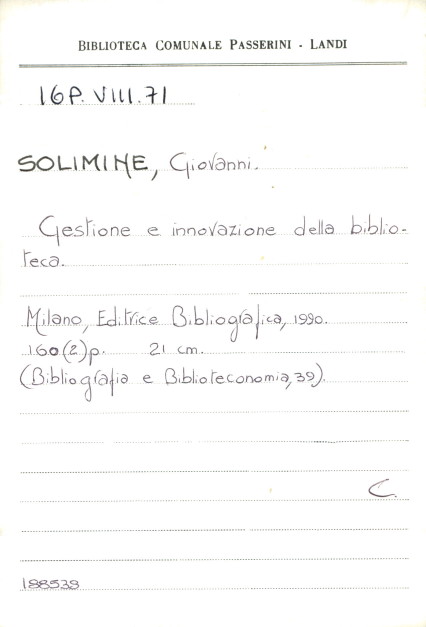 BIBLIOTECA COMUNALE PASSERINI - LANDI
16P. VIII. 71
SOLIMINE, Giovanni.
Gestione e innovazione della biblio-
teca.
Milano, Editrice Bibliografica, 1990.
160(2)p. 21 cm.
(Bibliografia e Biblioteconomia, 39).
C.
188539